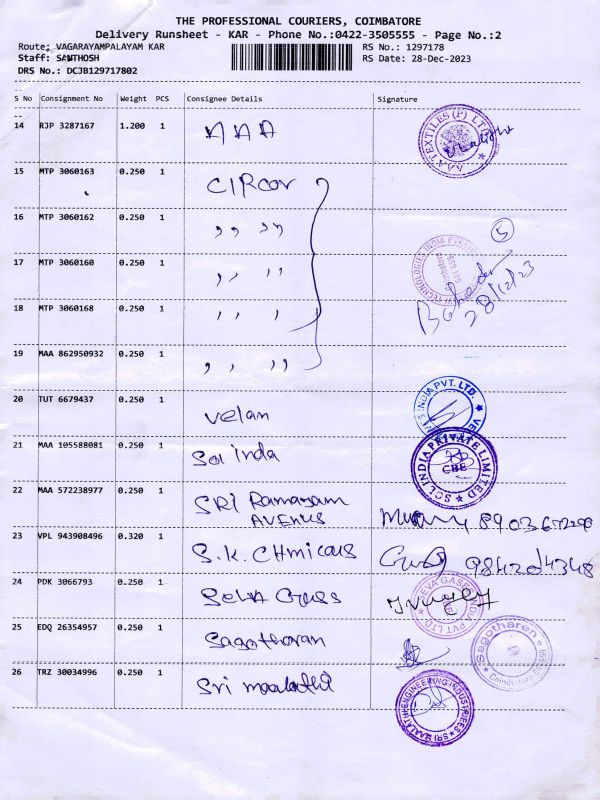 THE PROFESSIONAL COURIERS, COIMBATORE
Delivery Runsheet - KAR - Phone No.:0422-3505555 - Page No.:2
Route: VAGARAYAMPALAYAM KAR RS No.: 1297178
Staff: SANTHOSH RS Date: 28-Dec-2023
DRS No.: DCJB129717802
S No Consignment No Weight PCS Consignee Details Signature
14 RJP 3287167 1.200 1 AAA
AAA TEXTILES (P) LTD
15 MTP 3060163 0.250 1 CIRCOR
16 MTP 3060162 0.250 1 ,, ,,
5
17 MTP 3060160 0.250 1 ,, ,,
TECHNOLOGIES INDIA
28/12/23
18 MTP 3060168 0.250 1 ,, ,
19 MAA 862950932 0.250 1 ,, ,,
20 TUT 6679437 0.250 1 Velan
INDIA PVT. LTD.
21 MAA 105588081 0.250 1 Scl inda
SCL INDIA PRIVATE LIMITED
CBE
22 MAA 572238977 0.250 1 SRI Ramayam
AVENUS
23 VPL 943908496 0.320 1 S.K. CHmicals
24 PDK 3066793 0.250 1 Selva Gass
GASES INDIA PVT LTD
25 EDQ 26354957 0.250 1 Sagotharan
Sagotharen
Coimbatore
26 TRZ 30034996 0.250 1 Sri maalathi
SRI MAALATHI ENGINEERING INDUSTRIES